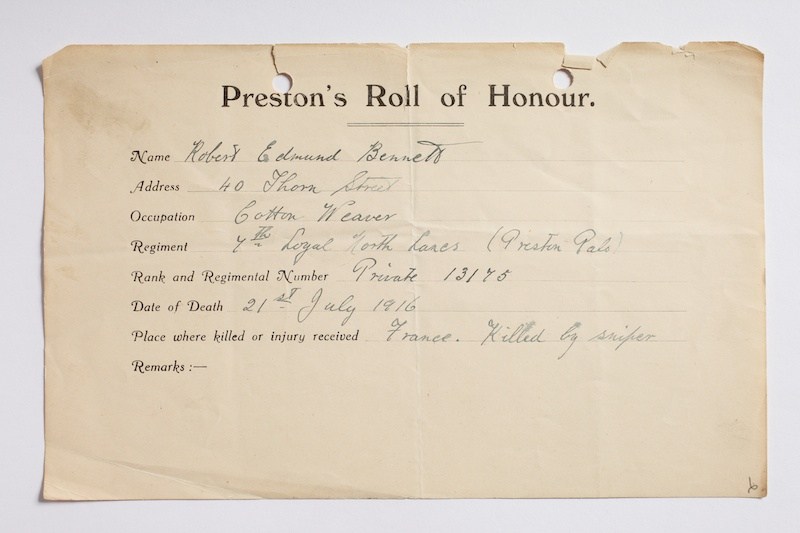 Preston's Roll of Honour.
Name Robert Edmund Bennett
Address 40 Thorn Street
Occupation Cotton Weaver
Regiment 7th Loyal North Lancs (Preston Pals)
Rank and Regimental Number Private 13175
Date of Death 21st July 1916
Place where killed or injury received France. Killed by sniper
Remarks :—